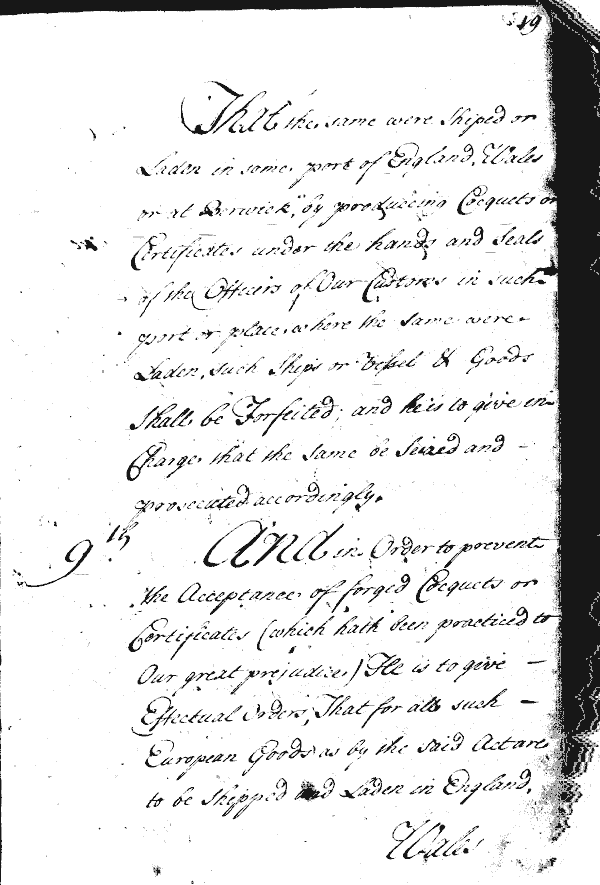 19
That the same were Shiped or
Laden in some port of England, Wales
or at Berwick, by producing Cocquets or
Certificates under the hands and Seals
of the Officers of Our Customs in such
port or place where the same were
Laden, such Ships or Vessel & Goods
Shall be Forfeited; and he is to give in
Charge that the same be Seized and
prosecuted accordingly.
9th. And in Order to prevent
the Acceptance of forged Cocquets or
Certificates (which hath been practiced to
Our great prejudice) He is to give
Effectual Orders, That for all such
European Goods as by the said Act are
to be shipped and Laden in England,
Wales